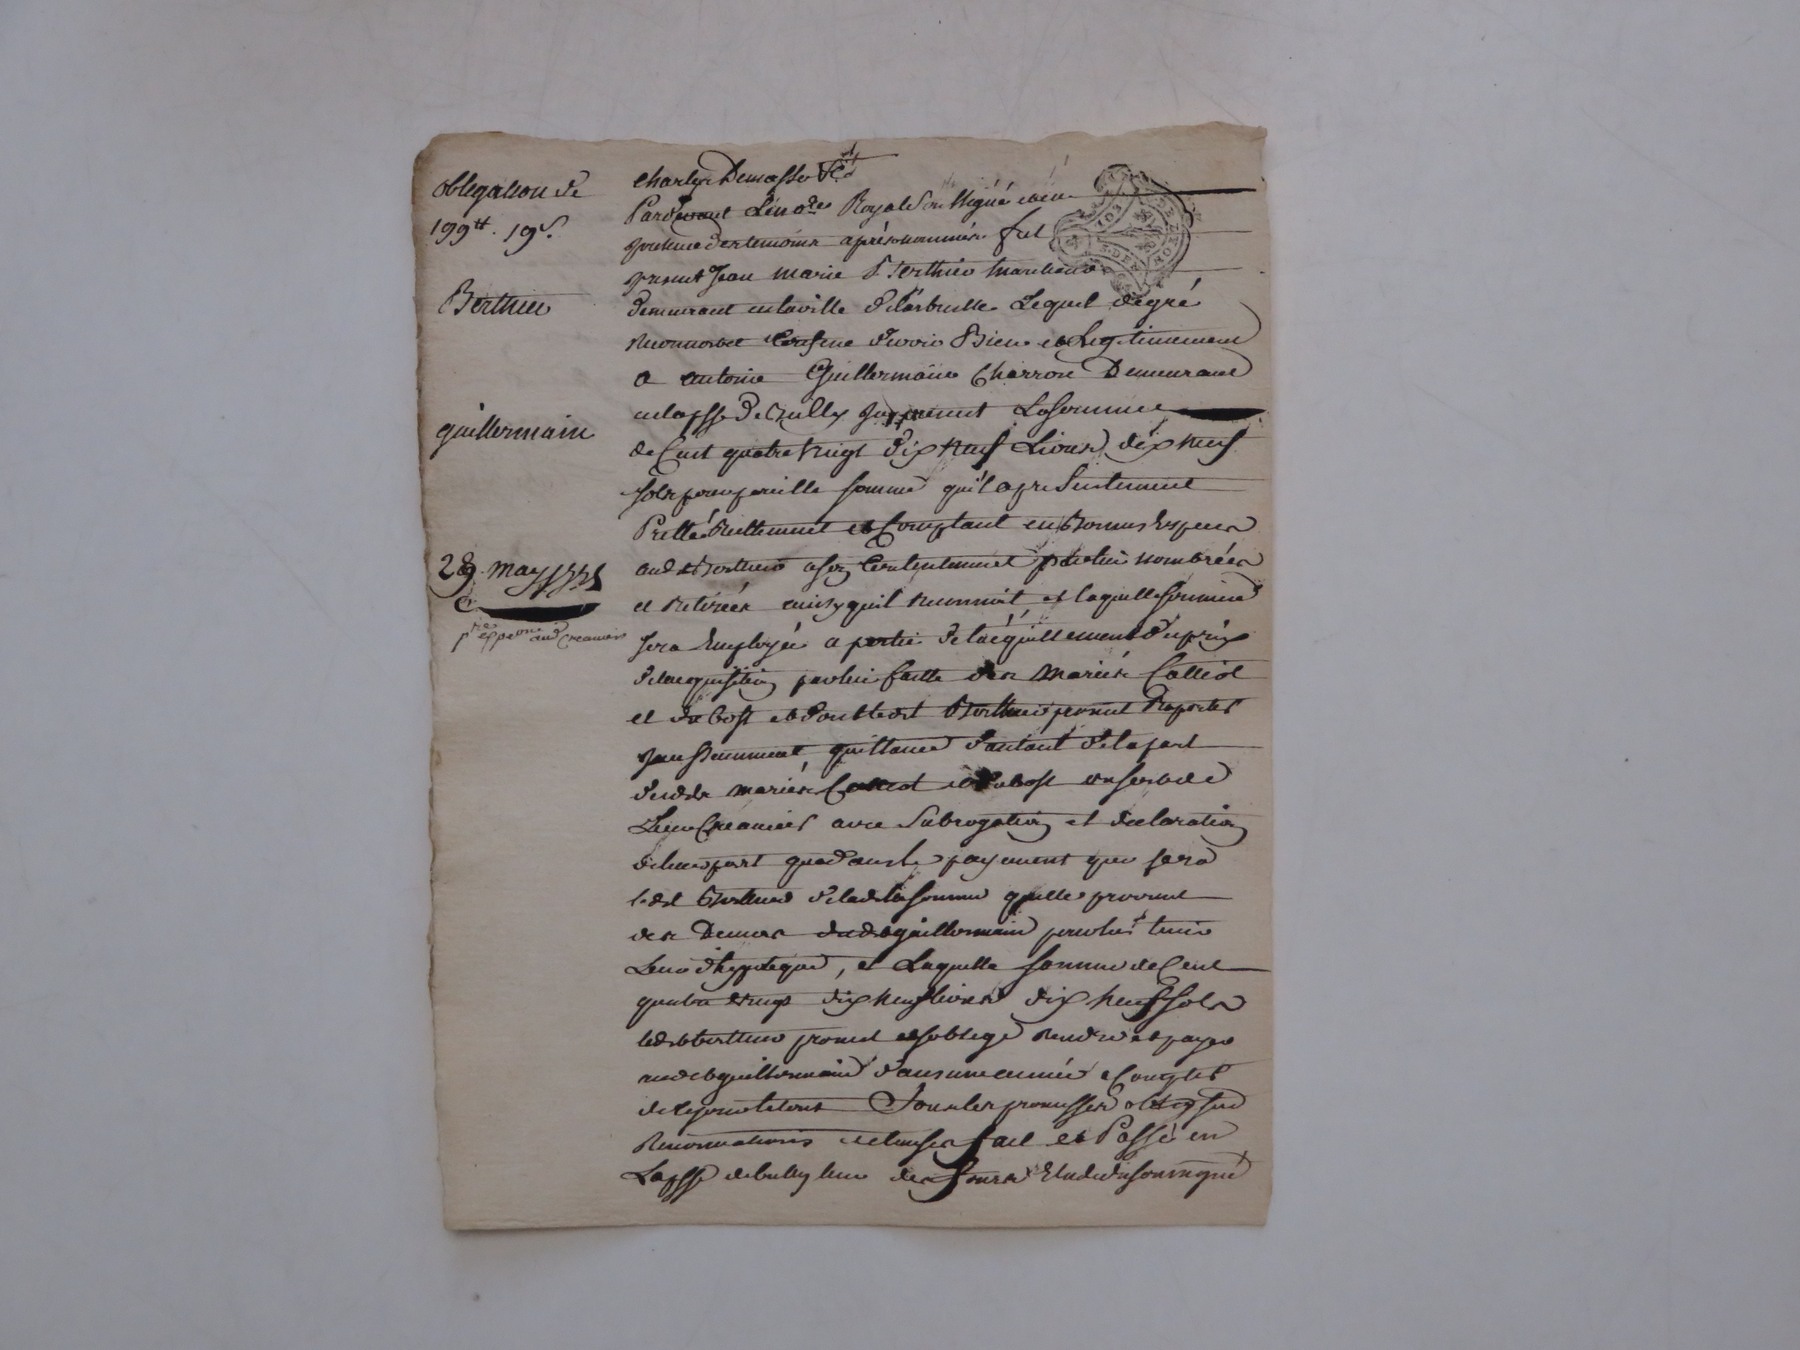 obligation de
199tt. 19s.
Berthier
guillermain
28 may
Charles Demasso
Pardevant Le no.re Royal Soussigné et en
presence des temoins après nommés fut
present Jean Marie Berthier Marchand
demeurant en la ville de Larbresle Lequel de gré
reconnoit et Confesse devoir Bien et Legitimement
a antoine Guillermain Charron Demeurant
en la psse De Bully present La Somme
de Cent quatre vingt dix neuf Livres dix neuf
sols pour pareille somme qu'il a presentement
Pretté Reellement et Comptant en Bonnes Especes
aud. Berthier a son Contentement par lui nombrées
et Retirées ainsy quil reconnoit et laquelle somme
sera Employée a partie de lacquittement du prix
de lacquisition par lui faitte des Mariés Colliot
et dubost et dont ledit Berthier promet Raporter
quittance d'autant de la part
desdits mariés et dubost ensemble
Leur Creancier avec Subrogation et declaration
de leur part que dans le payement que fera
ledit Berthier de ladite somme qu'elle provient
des Deniers dudit guillermain pour lui tenir
Lieu d'hypoteque, et Laquelle somme de Cent
quatre vingt dix neuf livres dix neuf sols
ledit Berthier promet et s'oblige rendre et payer
audit guillermain dans une année a Compter
de ce jour Sous les promesses oblig.
Renonciations et Clauses fait et Passé en
La psse de Bully Lieu des Etude du Soussigné